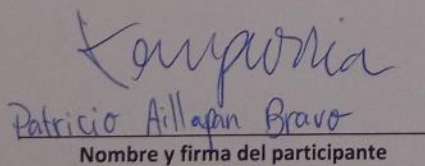 Patricio Aillapan Bravo
Nombre y firma del participante